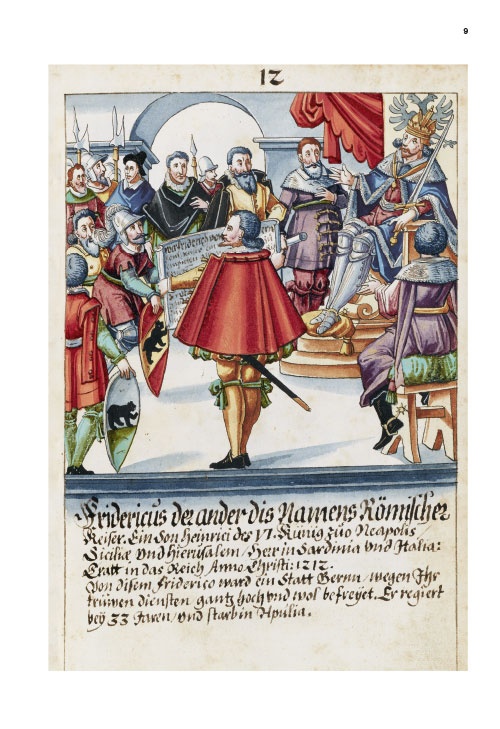 9
12
Fridericus der ander dis Namens Römischer
Keiser. Ein Son Heinrici des VI. Künig zuo Neapolis
Siciliæ vnd Hierusalem / Herr in Sardinia vnd Italia:
Tratt in das Reich Anno Christi: 1212.
Von disem Friderico ward ein Statt Bernn / wegen Ihr
trüwen diensten gantz hoch vnd wol befreyet. Er regiert
bey 33 Jaren / vnd starb in Apulia.